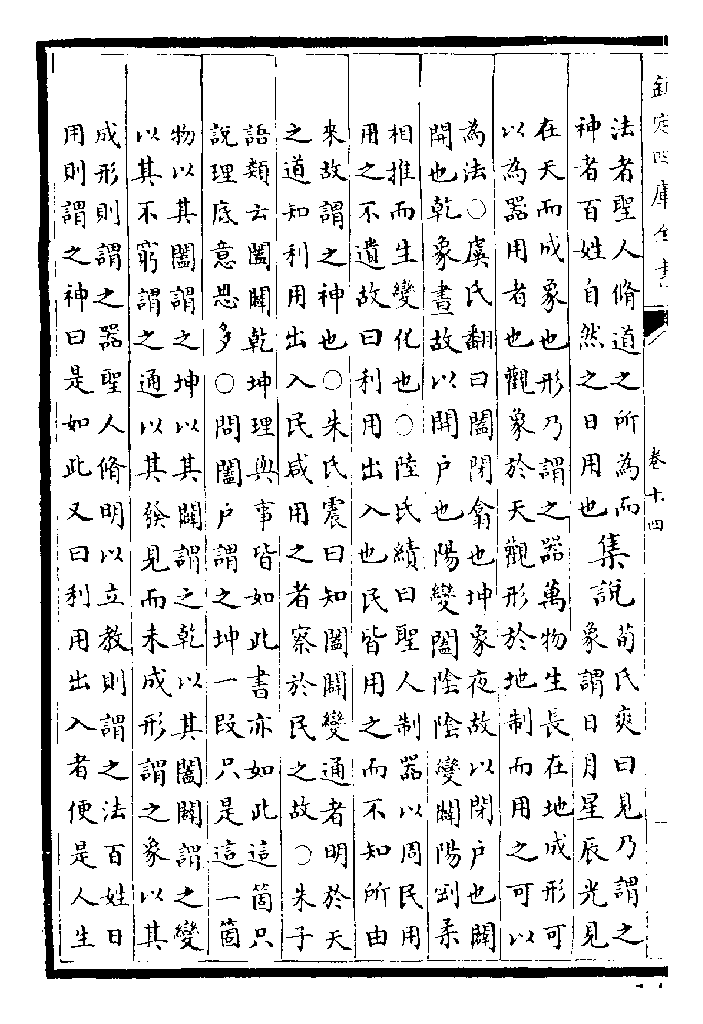 欽定四庫全書
卷十四
法者聖人脩道之所為而
神者百姓自然之日用也
集說
荀氏爽曰見乃謂之
象謂日月星辰光見
在天而成象也形乃謂之器萬物生長在地成形可
以為器用者也觀象於天觀形於地制而用之可以
為法○虞氏翻曰闔閉翕也坤象夜故以閉戶也闢
開也乾象晝故以開戶也陽變闔陰陰變闢陽剛柔
相推而生變化也○陸氏績曰聖人制器以周民用
用之不遺故曰利用出入也民皆用之而不知所由
來故謂之神也○朱氏震曰知闔闢變通者明於天
之道知利用出入民咸用之者察於民之故○朱子
語類云闔闢乾坤理與事皆如此書亦如此這箇只
說理底意思多○問闔戶謂之坤一段只是這一箇
物以其闔謂之坤以其闢謂之乾以其闔闢謂之變
以其不窮謂之通以其發見而未成形謂之象以其
成形則謂之器聖人脩明以立教則謂之法百姓日
用則謂之神曰是如此又曰利用出入者便是人生